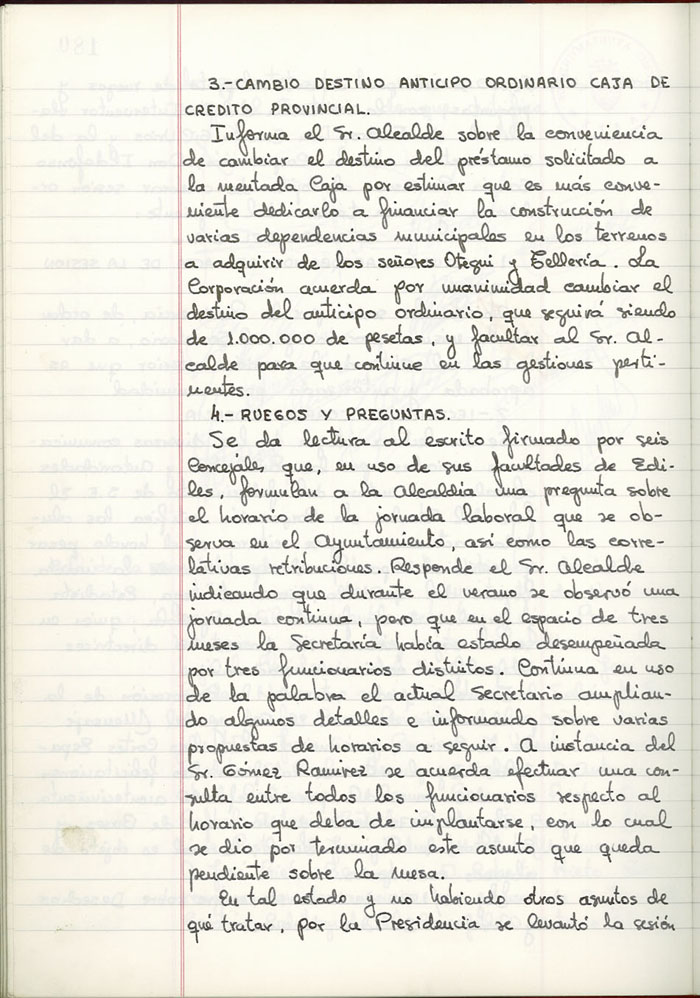 3.-CAMBIO DESTINO ANTICIPO ORDINARIO CAJA DE
CREDITO PROVINCIAL.
Informa el Sr. Alcalde sobre la conveniencia
de cambiar el destino del préstamo solicitado a
la mentada Caja por estimar que es más conve-
niente dedicarlo a financiar la construcción de
varias dependencias municipales en los terrenos
a adquirir de los señores Otegui y Tellería. La
Corporación acuerda por unanimidad cambiar el
destino del anticipo ordinario, que seguirá siendo
de 1.000.000 de pesetas, y facultar al Sr. Al-
calde para que continue en las gestiones perti-
nentes.
4.- RUEGOS Y PREGUNTAS.
Se da lectura al escrito firmado por seis
Concejales que, en uso de sus facultades de Edi-
les, formulan a la Alcaldía una pregunta sobre
el horario de la jornada laboral que se ob-
serva en el Ayuntamiento, así como las corre-
lativas retribuciones. Responde el Sr. Alcalde
indicando que durante el verano se observó una
jornada continua, pero que en el espacio de tres
meses la Secretaría había estado desempeñada
por tres funcionarios distintos. Continua en uso
de la palabra el actual Secretario amplian-
do algunos detalles e informando sobre varias
propuestas de horarios a seguir. A instancia del
Sr. Gómez Ramirez se acuerda efectuar una con-
sulta entre todos los funcionarios respecto al
horario que deba de implantarse, con lo cual
se dio por terminado este asunto que queda
pendiente sobre la mesa.
En tal estado y no habiendo otros asuntos de
qué tratar, por la Presidencia se levantó la sesión